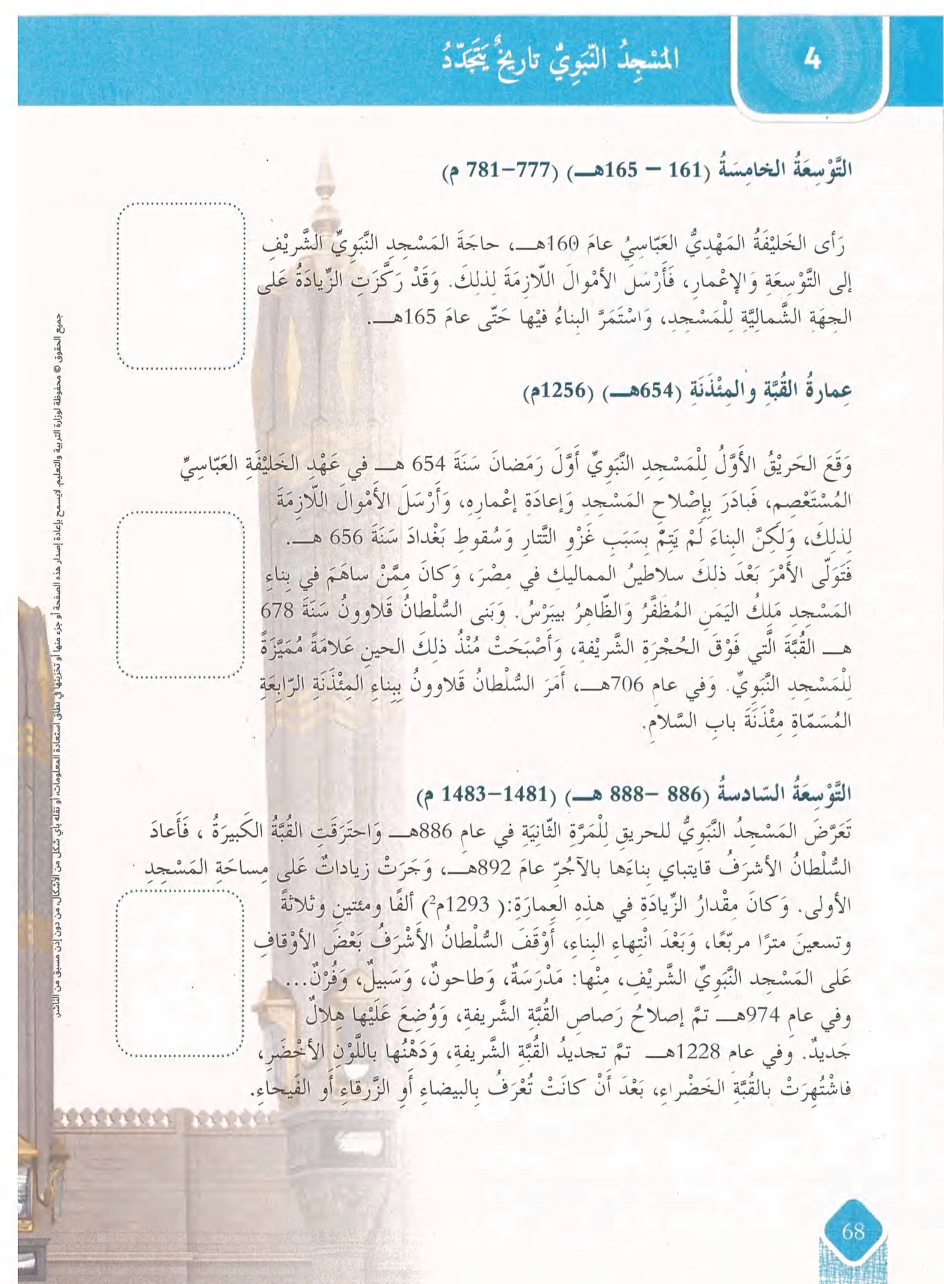 4
المَسْجِدُ النَّبَوِيُّ تاريخٌ يَتَجَدَّدُ
التَّوْسِعَةُ الخامِسَةُ (161 – 165هـ) (777–781 م)
رَأى الخَليْفَةُ المَهْدِيُّ العَبّاسِيُ عامَ 160هـ، حاجَةَ المَسْجِدِ النَّبَوِيِّ الشَّرِيْفِ
إلى التَّوْسِعَةِ وَالإعْمارِ، فَأَرْسَلَ الأمْوالَ اللّازِمَةَ لذلكَ. وَقَدْ رَكَّزَتِ الزِّيادَةُ عَلى
الجهَةِ الشَّماليَّةِ لِلْمَسْجدِ، وَاسْتَمَرَّ البناءُ فيْها حَتّى عامَ 165هـ.
عِمارةُ القُبَّةِ والمِئْذَنَةِ (654هـ) (1256م)
وَقَعَ الحَريْقُ الأوَّلُ لِلْمَسْجِدِ النَّبَويِّ أوَّلَ رَمَضانَ سَنَةَ 654 هـ في عَهْدِ الخَليْفَةِ العَبّاسِيِّ
المُسْتَعْصِمِ، فَبادَرَ بِإصْلاحِ المَسْجدِ وَإعادَةِ إعْمارِه، وَأرْسَلَ الأمْوالَ اللّازِمَةَ
لِذلِكَ، وَلكِنَّ البناءَ لَمْ يَتِمَّ بِسَبَبِ غَزْوِ التَّتارِ وَسُقوطِ بَغْدادَ سَنَةَ 656 هـ.
فَتَوَلّى الأمْرَ بَعْدَ ذلكَ سلاطينُ المماليكَ في مِصْرَ، وَكانَ مِمَّنْ ساهَمَ في بناءِ
المَسْجدِ مَلكُ اليَمَنِ المُظَفَّرُ وَالظّاهِرُ بيبَرْسُ. وَبَنى السُّلْطانُ قَلاوونُ سَنَةَ 678
هـ القُبَّةَ الَّتي فَوْقَ الحُجْرَةِ الشَّريْفةِ، وَأصْبَحَتْ مُنْذُ ذلكَ الحينِ عَلامَةً مُمَيَّزَةً
لِلْمَسْجِدِ النَّبَوِيِّ. وَفي عام 706هـ، أمَرَ السُّلْطانُ قَلاوونُ ببناءِ المِئْذَنَةِ الرّابِعَةِ
المُسَمّاةِ مِئْذَنَةَ بابِ السَّلامِ.
التَّوْسِعَةُ السّادسةُ (886 –888 هـ) (1481–1483 م)
تَعَرَّضَ المَسْجدُ النَّبَويُّ للحريقِ لِلْمَرَّةِ الثّانيَةِ في عام 886هـ وَاحتَرَقَتِ القُبَّةُ الكَبيرَةُ ، فَأعادَ
السُّلْطانُ الأشرَفُ قايتباي بناءَها بالآجُرِّ عامَ 892هـ، وَجَرَتْ زياداتٌ عَلى مِساحَةِ المَسْجدِ
الأولى. وَكانَ مِقْدارُ الزِّيادَةِ في هذِهِ العِمارَةِ:( 1293م²) ألفًا ومئتينِ وثلاثةً
وتسعينَ مترًا مربّعًا، وَبَعْدَ انْتِهاءِ البناءِ، أوْقَفَ السُّلْطانُ الأشْرَفُ بَعْضَ الأوْقافِ
عَلى المَسْجدِ النَّبَويِّ الشَّريْفِ، مِنْها: مَدْرَسَةٌ، وَطاحونٌ، وَسَبيلٌ، وَفُرْنٌ...
وفي عام 974هـ تمَّ إصلاحُ رَصاصِ القُبَّةِ الشَّريفةِ، وَوُضِعَ عَلَيْها هِلالٌ
جَديدٌ. وفي عام 1228هـ تمَّ تجديدُ القُبَّةِ الشَّريفةِ، وَدَهْنُها باللَّوْنِ الأخْضَرِ،
فاشْتُهِرَتْ بالقُبَّةِ الخَضْراءِ، بَعْدَ أنْ كانَتْ تُعْرَفُ بالبيضاءِ أوِ الزَّرقاءِ أوِ الفَيحاءِ.
جميع الحقوق © محفوظة لوزارة التربية والتعليم. لايسمح بإعادة إصدار هذه الصفحة أو جزء منها أو تخزينها في نطاق استعادة المعلومات، أو نقله بأي شكل من الأشكال، من دون إذن مسبق من الناشر.
68